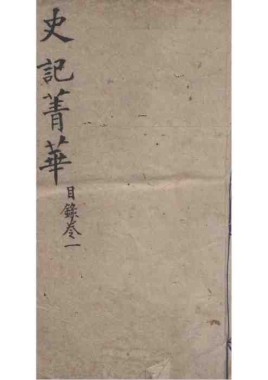 史記菁華
目錄卷一